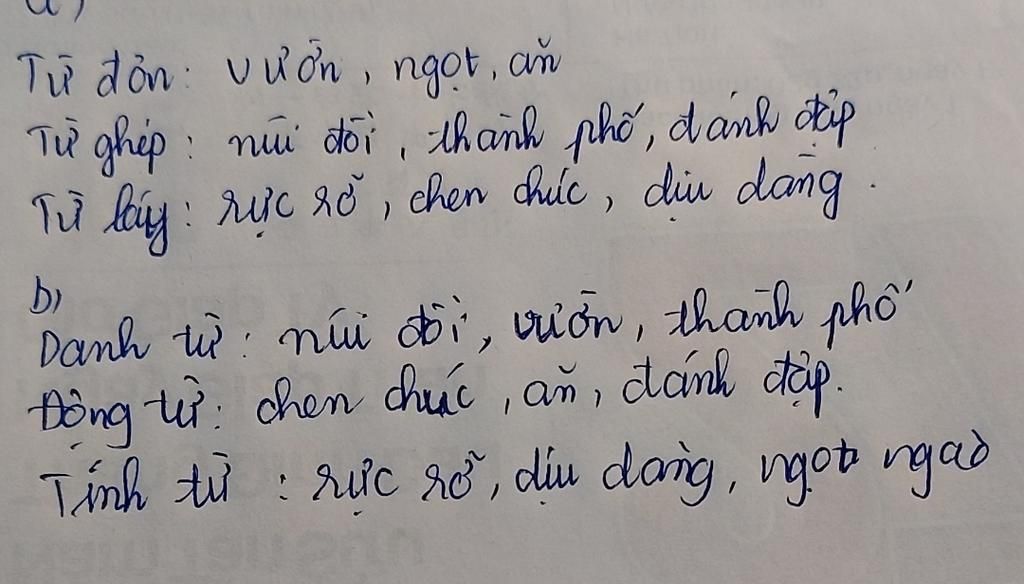 a)
Từ đơn: vườn, ngọt, ăn
Từ ghép: núi đồi, thành phố, đánh đập
Từ láy: rực rỡ, chen chúc, dịu dàng.
b)
Danh từ: núi đồi, vườn, thành phố
Động từ: chen chúc, ăn, đánh đập.
Tính từ: rực rỡ, dịu dàng, ngọt ngào